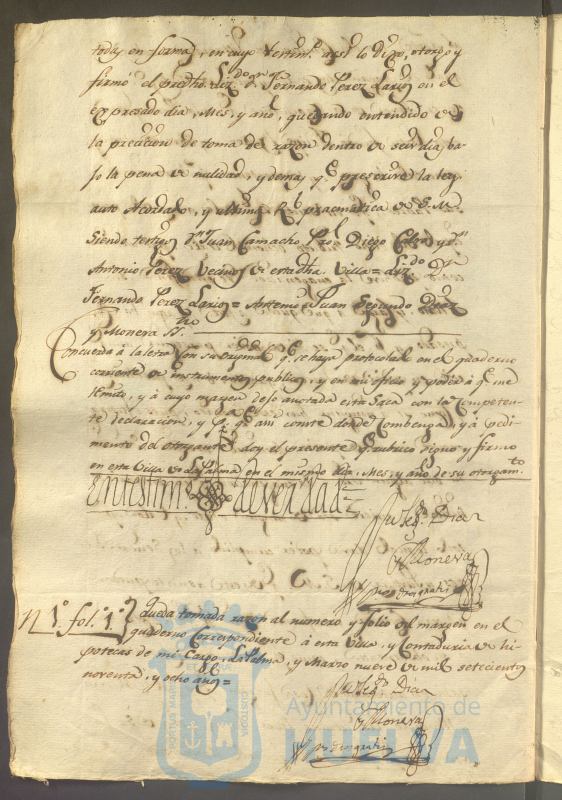 todas en forma, en cuyo testim.º assi lo dixo, otorgo y
firmó el predho. Liz.do Dn. Fernando Perez Larios en el
expresado dia, Mes, y año, quedando entendido de
la precicion de toma de razon dentro de seis dias ba-
jo la pena de nulidad, y demas q.e prescrive la ley,
auto Acordado, y ultima R.l pragmatica de S. M.
Siendo testigos Juan Camacho Diego y
Antonio Perez Vecinos de esta dha. Villa = Liz.do Dn.
Fernando Perez Larios = Antemi = Juan Segundo Diaz
y Monera
Concuerda á la letra con su original q.e se haya protocolado en el quaderno
corriente de instrumentos publicos, y en mi oficio y poder á q.e me
remito, y á cuyo margen dejo anotada esta Saca con la Competen-
te declaracion, y p.a q.e asi conste donde Combenga, y á pedi-
mento del otorgante, doy el presente q.e rubrico signo y firmo
en esta Villa de LaPalma en el mismo dia, Mes, y año de su otorgam.to
En testim.º de verdad
Ju.n Seg.do Diaz
y Monera
N.º 1.º fol.º 1.º
Queda tomada razon al numero y folio del margen en el
quaderno Correspondiente á esta Villa, y Contaduria de hi-
potecas de mi Cargo. LaPalma, y Marzo nueve de mil setecientos
noventa, y ocho años =
Ju.n Seg.do Diaz
y Monera
Ayuntamiento de
HUELVA